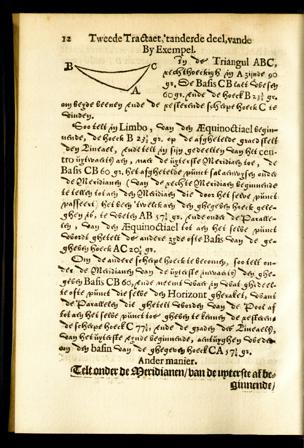 12 Tweede Tractaet, 'tanderde deel, vande
By Exempel.
B C
A
In de Triangul ABC,
rechthoeckich in A zijnde 90
gr. De Basis CB laet wesen
60 gr. ende de hoeck B 23½ gr.
om beyde beenen ende de resterende scherpe hoeck C te
vinden.
Soo telt in Limbo, van den Æquinoctiael begin-
nende, de hoeck B 23½ gr. op de afghetelde graed stelt
den Lineael, ende telt in sijn gedeelten van het cen-
tro uytwaerts aen, naer de uyterste Meridiaen toe, de
Basis CB 60 gr. het afghetelde punct sal aenwysen onder
de Meridianen (van de rechte Meridiaen beginnende
te tellen tot aen den Meridiaen die door het selve punct
passeert) het been 'twelck aen den ghegheven hoeck gele-
ghen is, te weten AB 57¾ gr. ende onder de Paralle-
len, van den Æquinoctiael tot aen het selve punct
wordt ghetelt de andere zyde ofte Basis van de ge-
gheven hoeck AC 20¼ gr.
Om de andere scherpe hoeck te bekomen, soo telt on-
der de Meridianen van de uyterste inwaerts den ghe-
geven Basis CB 60, ende neemt waer in wat ghesneden
te ofte punct die selve den Horizont gheraket, want
de Parallelen die ghetelt worden van de Pool af
tot aen het selve punct toe gheven te kennen de resterende
de scherpe hoeck C 77½, ende de graden der Lineaels,
van het uyterste eynde beginnende, achterwaerts
om den basin van de ghegeven hoeck CA 57¾ gr.
Ander manier.
Telt onder de Meridianen, van de upterste af be-
ginnende,